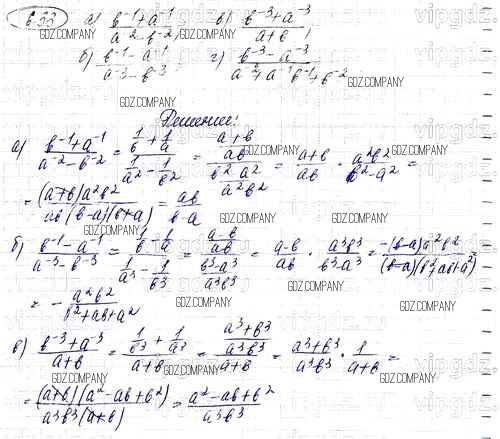 6.33 а) (b⁻¹+a⁻¹)/(a⁻²-b⁻²); в) (b⁻³+a⁻³)/(a+b);
б) (b⁻¹-a⁻¹)/(a⁻³-b⁻³); г) (b⁻³-a⁻³)/(a⁻²+a⁻¹b⁻¹+b⁻²)
Решение:
а) (b⁻¹+a⁻¹)/(a⁻²-b⁻²) = (1/b+1/a)/(1/a²-1/b²) = ((a+b)/ab)/((b²-a²)/a²b²) = (a+b)/ab · a²b²/(b²-a²) =
= (a+b)a²b²/(ab(b-a)(b+a)) = ab/(b-a)
б) (b⁻¹-a⁻¹)/(a⁻³-b⁻³) = (1/b-1/a)/(1/a³-1/b³) = ((a-b)/ab)/((b³-a³)/a³b³) = (a-b)/ab · a³b³/(b³-a³) = -(b-a)a²b²/((b-a)(b²+ab+a²)) =
= - a²b²/(b²+ab+a²)
в) (b⁻³+a⁻³)/(a+b) = (1/b³+1/a³)/(a+b) = ((a³+b³)/a³b³)/(a+b) = (a³+b³)/a³b³ · 1/(a+b) =
= (a+b)(a²-ab+b²)/(a³b³(a+b)) = (a²-ab+b²)/a³b³
GDZ.COMPANY
vipgdz